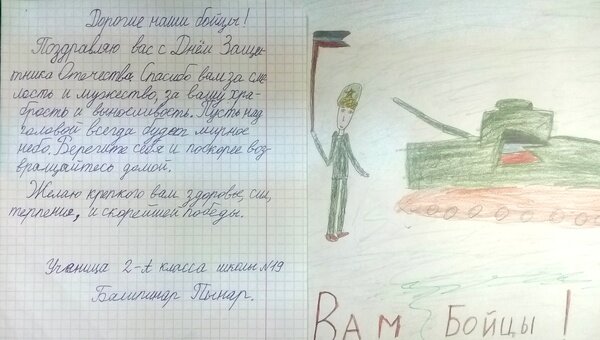 Дорогие наши бойцы!
Поздравляю вас с Днём Защи-
тника Отечества. Спасибо вам за сме-
лость и мужество, за вашу хра-
брость и выносливость. Пусть над
головой всегда будет мирное
небо. Берегите себя и поскорее воз-
вращайтесь домой.
Желаю крепкого вам здоровье, сил,
терпение, и скорейшей победы.
Ученица 2-А класса школы №19
Пынар.
Вам Бойцы!